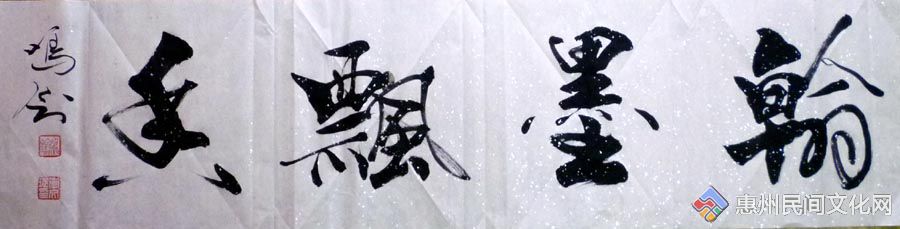 翰墨飄香
惠州民间文化网